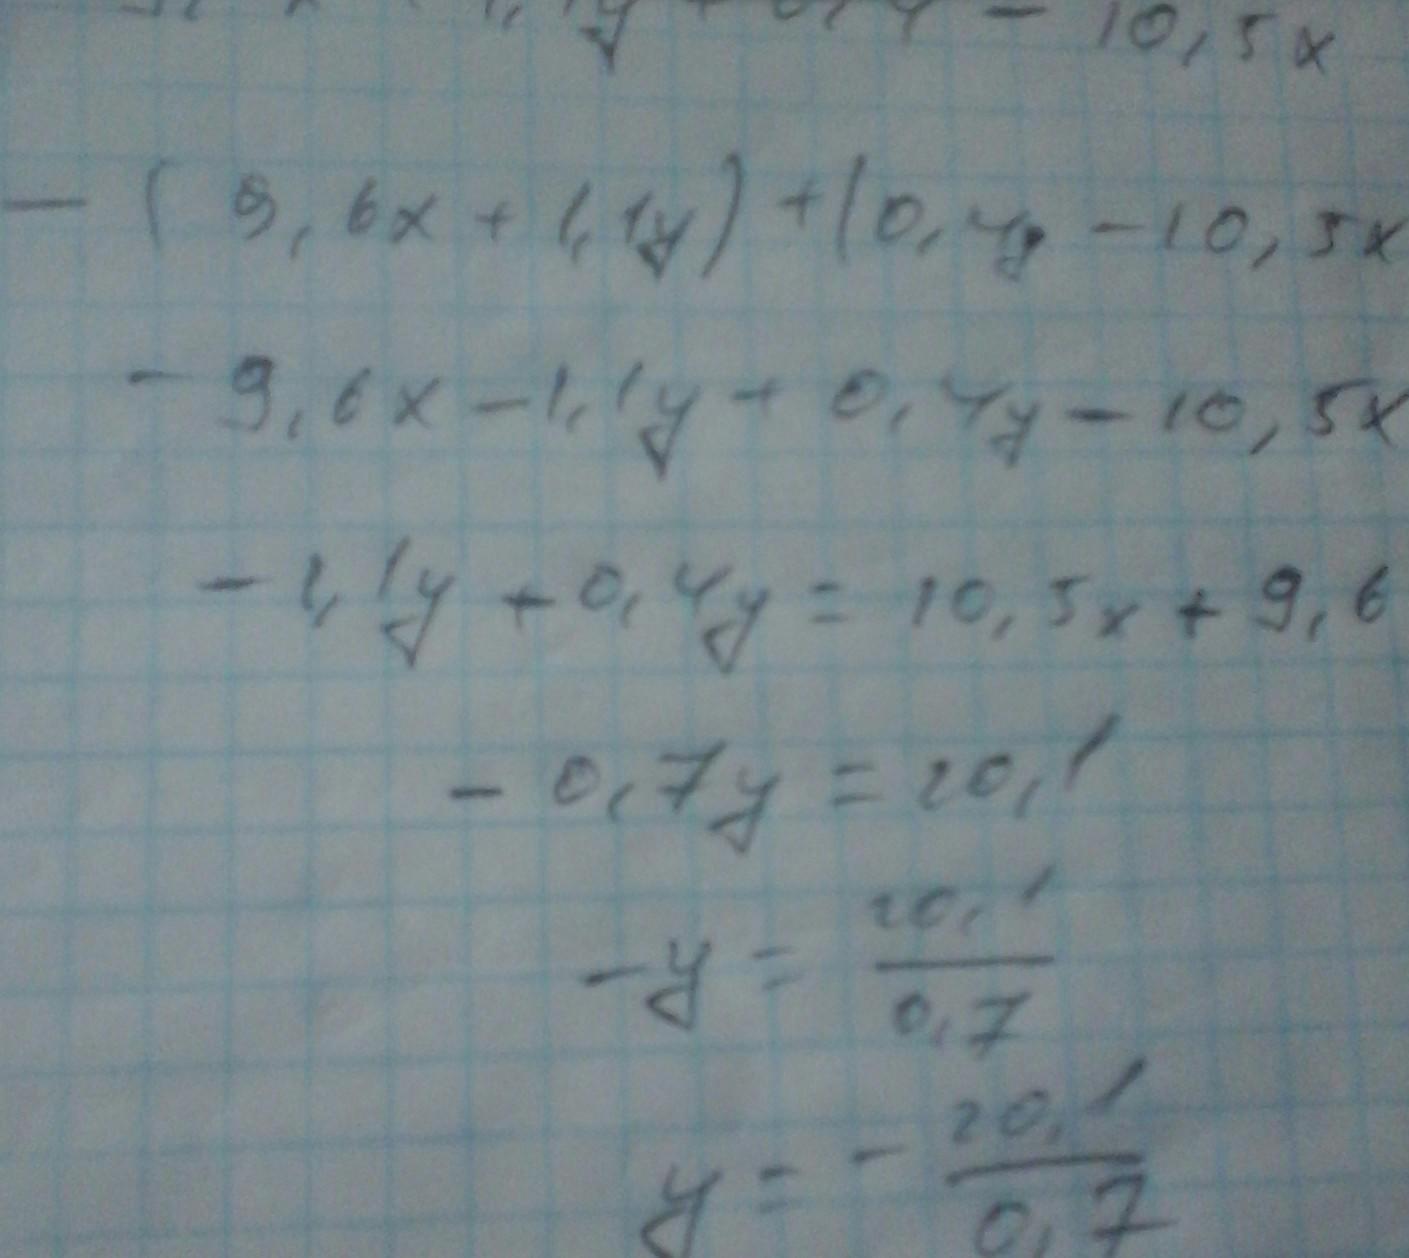 1,1y + 0,4 - 10,5x
- ( 9,6x + 1,1y) + (0,4y - 10,5x
- 9,6x - 1,1y + 0,4y - 10,5x
- 1,1y + 0,4y = 10,5x + 9,6
- 0,7y = 20,1
-y = 20,1 / 0,7
y = - 20,1 / 0,7